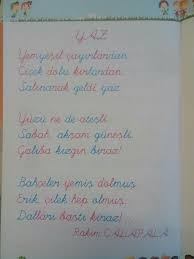 YAZ
Yemyeşil çayırlardan
Çiçek dolu kırlardan
Salınarak geldi yaz
Yüzü ne de ateşli
Sabah, akşam güneşli
Galiba kızgın biraz!
Bahçeler yemiş dolmuş
Erik, çilek hep olmuş
Dalları bastı kiraz!
Rakım ÇALAPALA